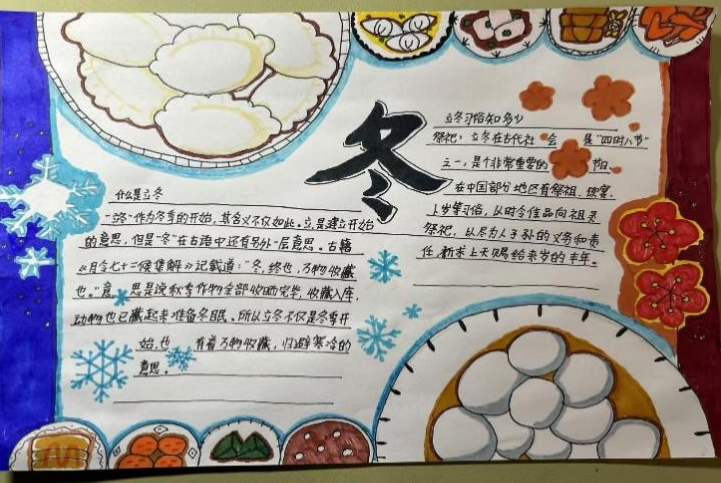 冬
立冬习俗知多少
祭祀：立冬在古代社会是"四时八节"
之一，是个非常重要的节日。
在中国部分地区有祭祖、饮宴、
卜岁等习俗，以时令佳品向祖灵
祭祀，以尽为人子孙的义务和责
任，祈求上天赐给来岁的丰年。
什么是立冬
"立冬"作为冬季的开始，其含义不仅如此。立，是建立开始
的意思，但是"冬"在古语中还有另外一层意思。古籍
《月令七十二候集解》记载道："冬，终也，万物收藏
也。"意思是说秋季作物全部收晒完毕，收藏入库，
动物也已藏起来准备冬眠。所以立冬不仅是冬季开
始，也有着万物收藏，归避寒冷的
意思。